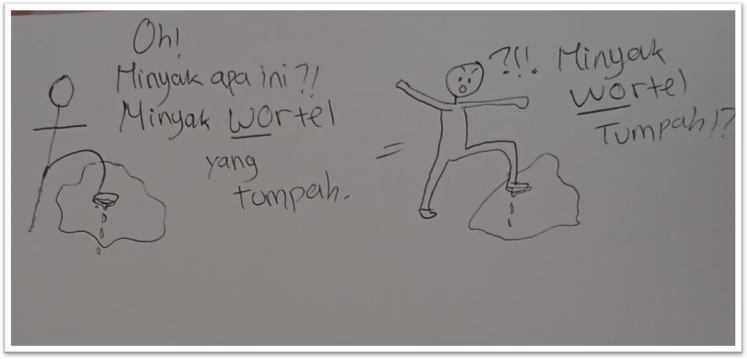 Oh!
Minyak apa ini?!
Minyak wortel
yang
tumpah.
=
?!!. Minyak
wortel
Tumpah!?